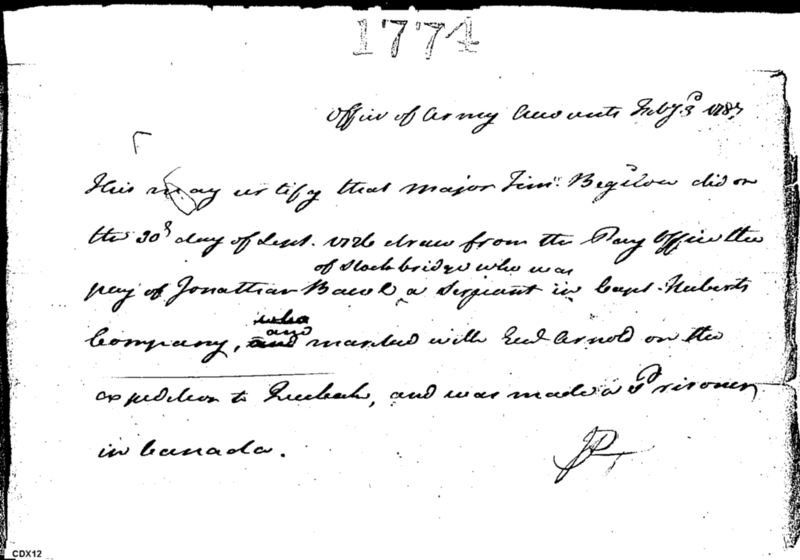 1774
Office of Army Accounts Feby 3d 1787
This may certify that major Timo. Begelow did on
the 30th day of Sept. 1776 draw from the Pay Office the
of Stockbridge who was
pay of Jonathan Ball a Serjeant in Capt. Huberts
who
and
Company, and marched with Genl Arnold on the
expedition to Quebeck, and was made a Prisoner
in Canada.
JP
CDX12